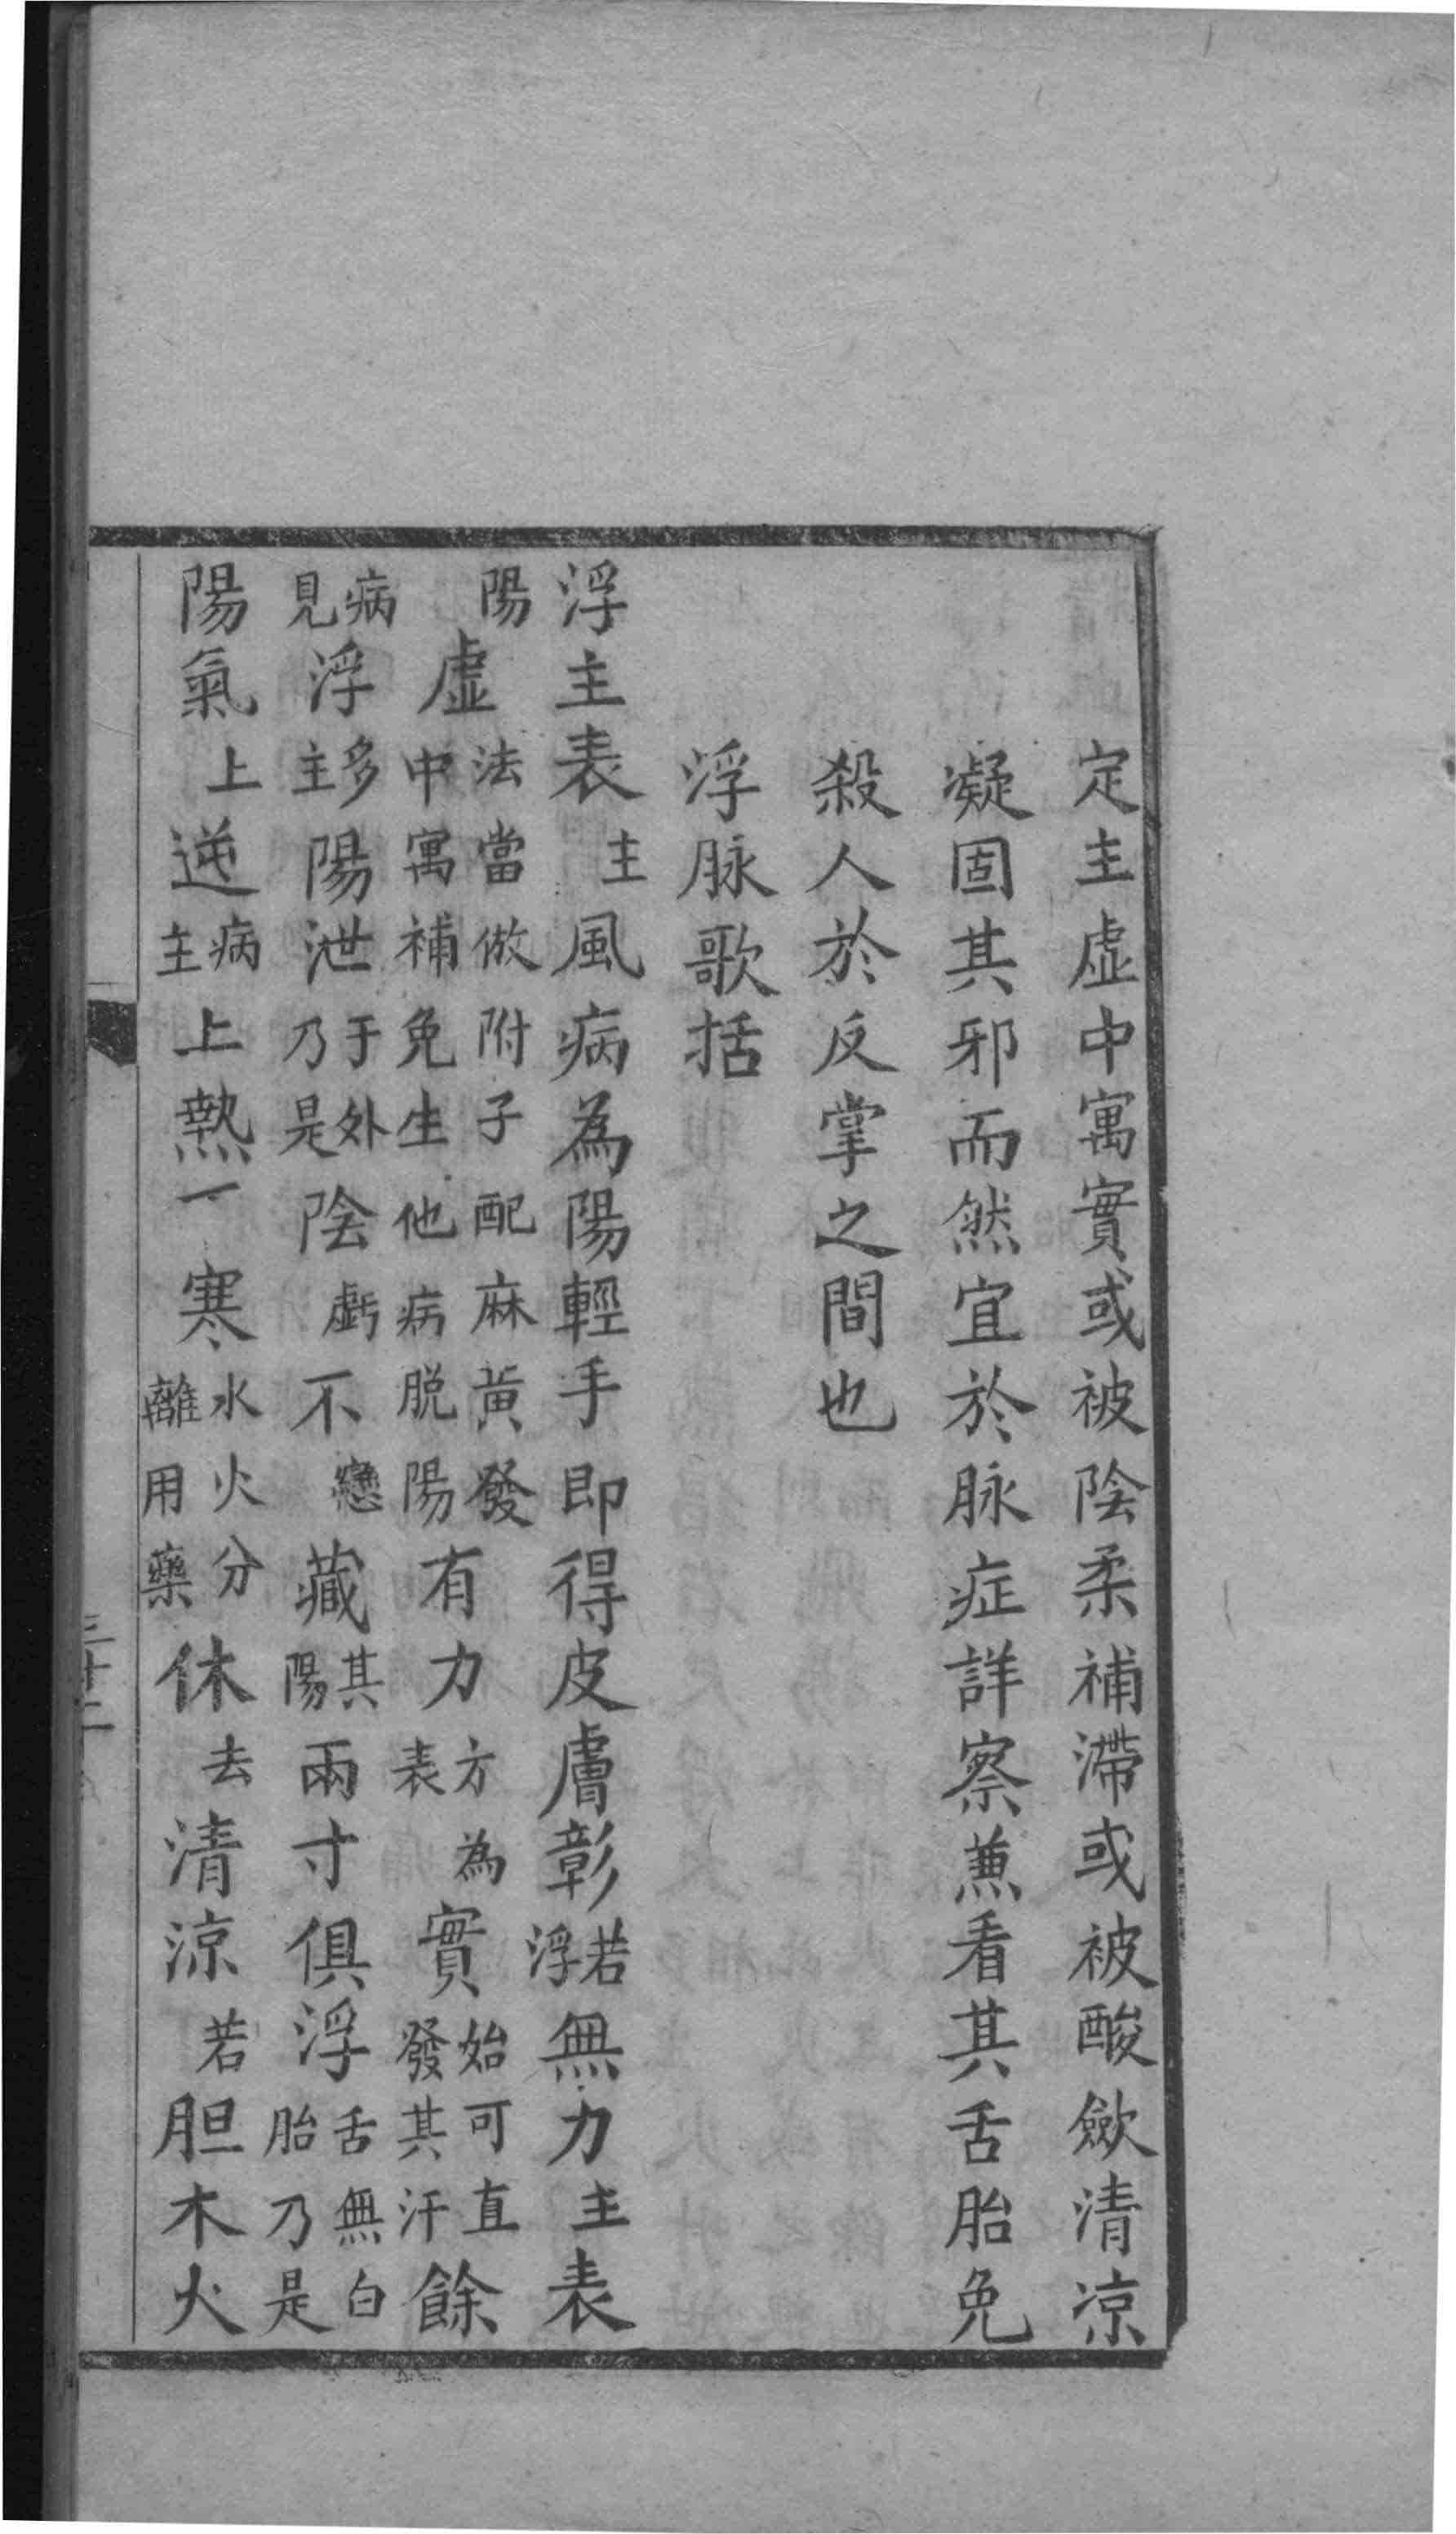 定主虛中寓實或被陰柔補滯或被酸斂清凉
凝固其邪而然宜於脉症詳察兼看其舌胎免
殺人於反掌之間也
浮脉歌括
浮主表主風病為陽輕手即得皮膚彰若浮無力主表
陽虛法當倣附子配麻黄發中寓補免生他病脱陽有力方為表實始可直發其汗餘
病見浮多主陽泄于外乃是陰虧不戀藏其陽兩寸俱浮舌無白胎乃是
陽氣上逆病主上熱一寒水火分離用藥休去清涼若胆木火
三十二